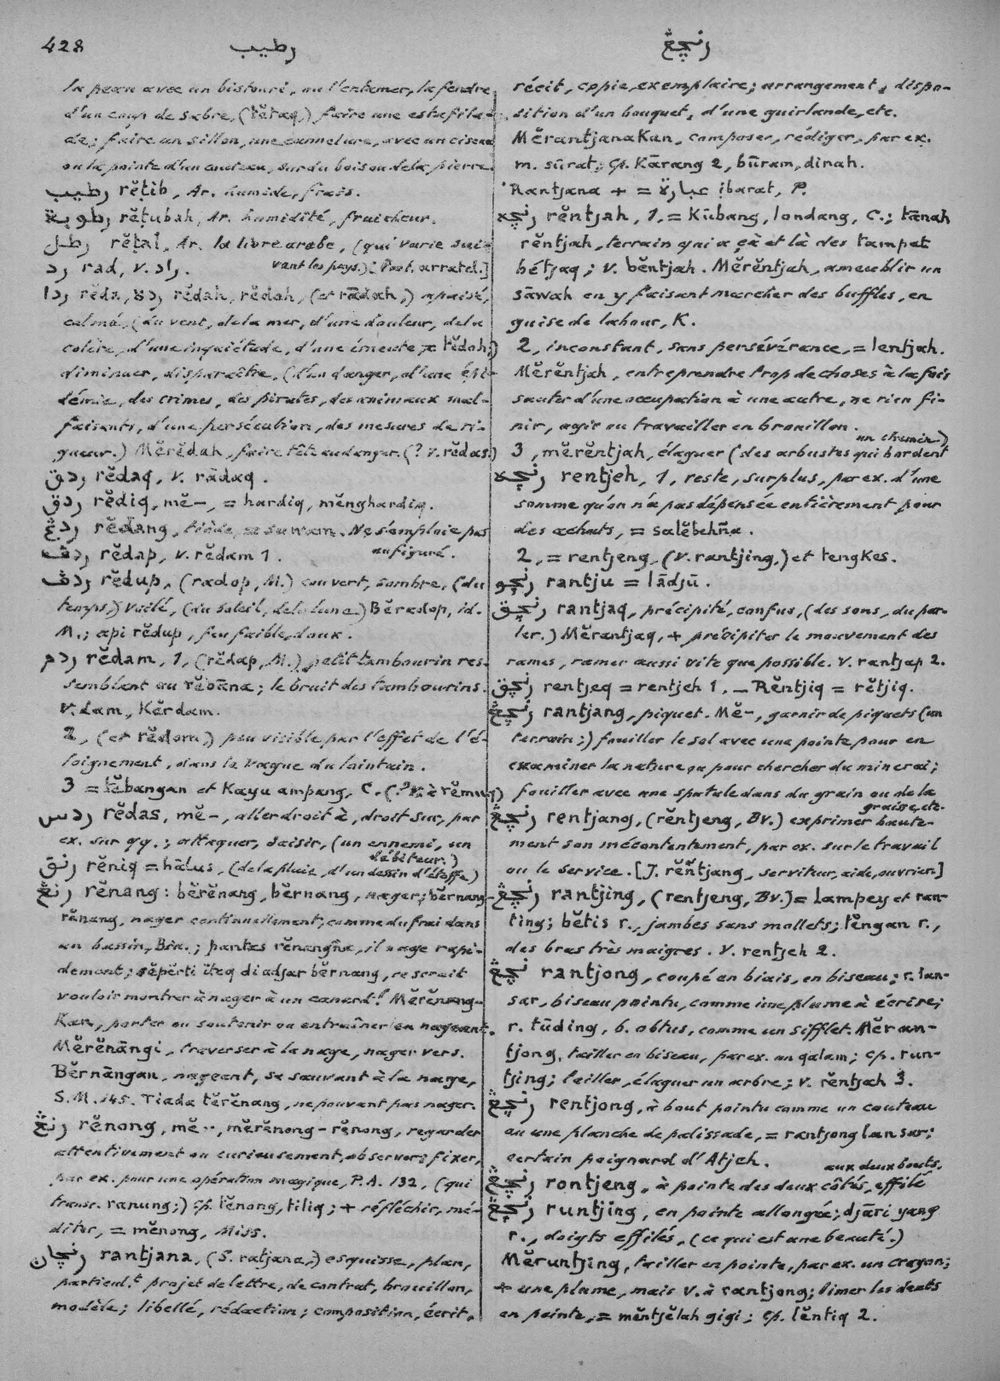 428
رطيب
رنچڠ
la peau avec un bistouri, ou l'entamer, la fendre
d'un coup de sabre, (tĕtaq,) faire une estafila-
de; faire un sillon, une cannelure, avec un ciseau
ou la pointe d'un couteau, sur du bois ou de la pierre.
رطيب rĕṭib, Ar. humide, frais.
رطوبة rĕṭubah, Ar. humidité, fraîcheur.
رطل rĕṭal, Ar. la livre arabe, (qui varie sui-
vant les pays.) [Port. arratel.]
رد rad, v. راد.
ردا rĕda, رده rĕdah, rĕdoh, (et rādah,) apaisé,
calmé, (du vent, de la mer, d'une douleur, de la
colère, d'une inquiétude, d'une émeute, tĕdoh;)
diminuer, disparaître, (d'un danger, d'une épi-
démie, des crimes, des pirates, des animaux mal-
faisants, d'une persécution, des mesures de ri-
gueur.) Mĕrĕdah, faire tête au danger. (? v. rĕdas.)
ردق rĕdaq, v. rādaq.
ردق rĕdiq, mĕ-, = hardiq, mĕnghardiq.
ردڠ rĕdang, tiède, = suwam. Ne s'emploie pas
au figuré.
ردڤ rĕdap, v. rĕdam 1.
ردڤ rĕdup, (radop, M.) couvert, sombre, (du
temps,) voilé, (du soleil, de la lune.) Bĕradop, id.
M.; api rĕdup, feu faible, doux.
ردم rĕdam, 1, (rĕdap, M.) petit tambourin res-
semblant au rĕbāna; le bruit des tambourins.
V. dam, Kĕrdam.
2, (et rĕdom,) peu visible par l'effet de l'é-
loignement, dans le vague du lointain.
3 = tĕbangan et Kayu ampang, C. (? v. à rĕmuq)
ردس rĕdas, mĕ-, aller droit à, droit sur, par
ex. sur qq.; attaquer, saisir, (un ennemi, un
débiteur.)
رنق rĕniq = hālus, (de la pluie, d'un dessin d'étoffe)
رنڠ rĕnang: bĕrĕnang, bĕrnang, nager; bĕrnang-
rĕnang, nager continuellement, comme du frai dans
un bassin, Bia.; pantas rĕnangña, il nage rapi-
dement; sĕpĕrti īteq diadjar bĕrnang, ce serait
vouloir montrer à nager à un canard! Mĕrĕnang-
Kan, porter ou soutenir ou entraîner en nageant.
Mĕrĕnāngi, traverser à la nage, nager vers.
Bĕrnāngan, nageant, se sauvant à la nage,
S.M. 145. Tiada tĕrĕnang, ne pouvant pas nager.
رنڠ rĕnong, mĕ-, mĕrĕnong-rĕnong, regarder
attentivement ou curieusement, observer; fixer,
par ex. pour une opération magique, P.A. 132, (qui
transc. ranung;) cp. tĕnong, tiliq; + réfléchir, mé-
diter, = mĕnong, Miss.
رنچان rantjana, (S. ratjana,) esquisse, plan,
particul.t projet de lettre, de contrat, brouillon,
modèle; libellé, rédaction; composition, écrit,
récit, copie, exemplaire; arrangement, dispo-
sition d'un bouquet, d'une guirlande, etc.
MĕrantjanaKan, composer, rédiger, par ex.
m. sūrat; cp. Kārang 2, būram, dinah.
Rantjana + = عبارة ibarat, P.
رنچه rĕntjah, 1, = Kūbang, londang, C.; tānah
rĕntjah, terrain qui a çà et là des tampat
bétjaq; v. bĕntjah. Mĕrĕntjah, ameublir un
sāwah en y faisant marcher des buffles, en
guise de labour, K.
2, inconstant, sans persévérance, = lentjah.
Mĕrĕntjah, entreprendre trop de choses à la fois
sauter d'une occupation à une autre, ne rien fi-
nir, agir ou travailler en brouillon.
un chemin.)
3, mĕrĕntjah, élaguer (des arbustes qui bordent
رنچه rentjeh, 1, reste, surplus, par ex. d'une
somme qu'on n'a pas dépensée entièrement pour
des achats, = salĕbehña.
2, = rentjeng, (v. rantjing,) et tengKes.
رنچو rantju = lādjū.
رنچق rantjaq, précipité, confus, (des sons, du par-
ler.) Mĕrantjaq, + précipiter le mouvement des
rames, ramer aussi vite que possible. V. rantjap 2.
رنچق rentjeq = rentjeh 1. — Rĕntjiq = rĕtjiq.
رنچڠ rantjang, piquet. Mĕ-, garnir de piquets (un
terrain;) fouiller le sol avec une pointe pour en
examiner la nature ou pour chercher du minerai;
fouiller avec une spatule dans du grain ou de la
graisse, etc.
رنچڠ rentjang, (rĕntjeng, Bv.) exprimer haute-
ment son mécontentement, par ex. sur le travail
ou le service. [J. rĕntjang, serviteur, aide, ouvrier]
رنچڠ rantjing, (rentjeng, Bv.) = lampey et ran-
ting; bĕtis r., jambes sans mollets; tĕngan r.,
des bras très maigres. V. rentjeh 2.
رنچڠ rantjong, coupé en biais, en biseau; r. lan-
sar, biseau pointu, comme une plume à écrire;
r. tūding, b. obtus, comme un sifflet. Mĕran-
tjong, tailler en biseau, par ex. un qalam; cp. run-
tjing; tailler, élaguer un arbre; v. rĕntjah 3.
رنچڠ rentjong, à bout pointu comme un couteau
ou une planche de palissade, = rantjong lansar;
certain poignard d'Atjeh.
aux deux bouts.
رنچڠ rontjeng, à pointe des deux côtés, effilé
رنچڠ runtjing, en pointe allongée; djari yang
r., doigts effilés, (ce qui est une beauté.)
Mĕruntjing, tailler en pointe, par ex. un crayon;
+ une plume, mais v. à rantjong; limer les dents
en pointe, = mĕntjĕlah gigi; cp. lĕntiq 2.